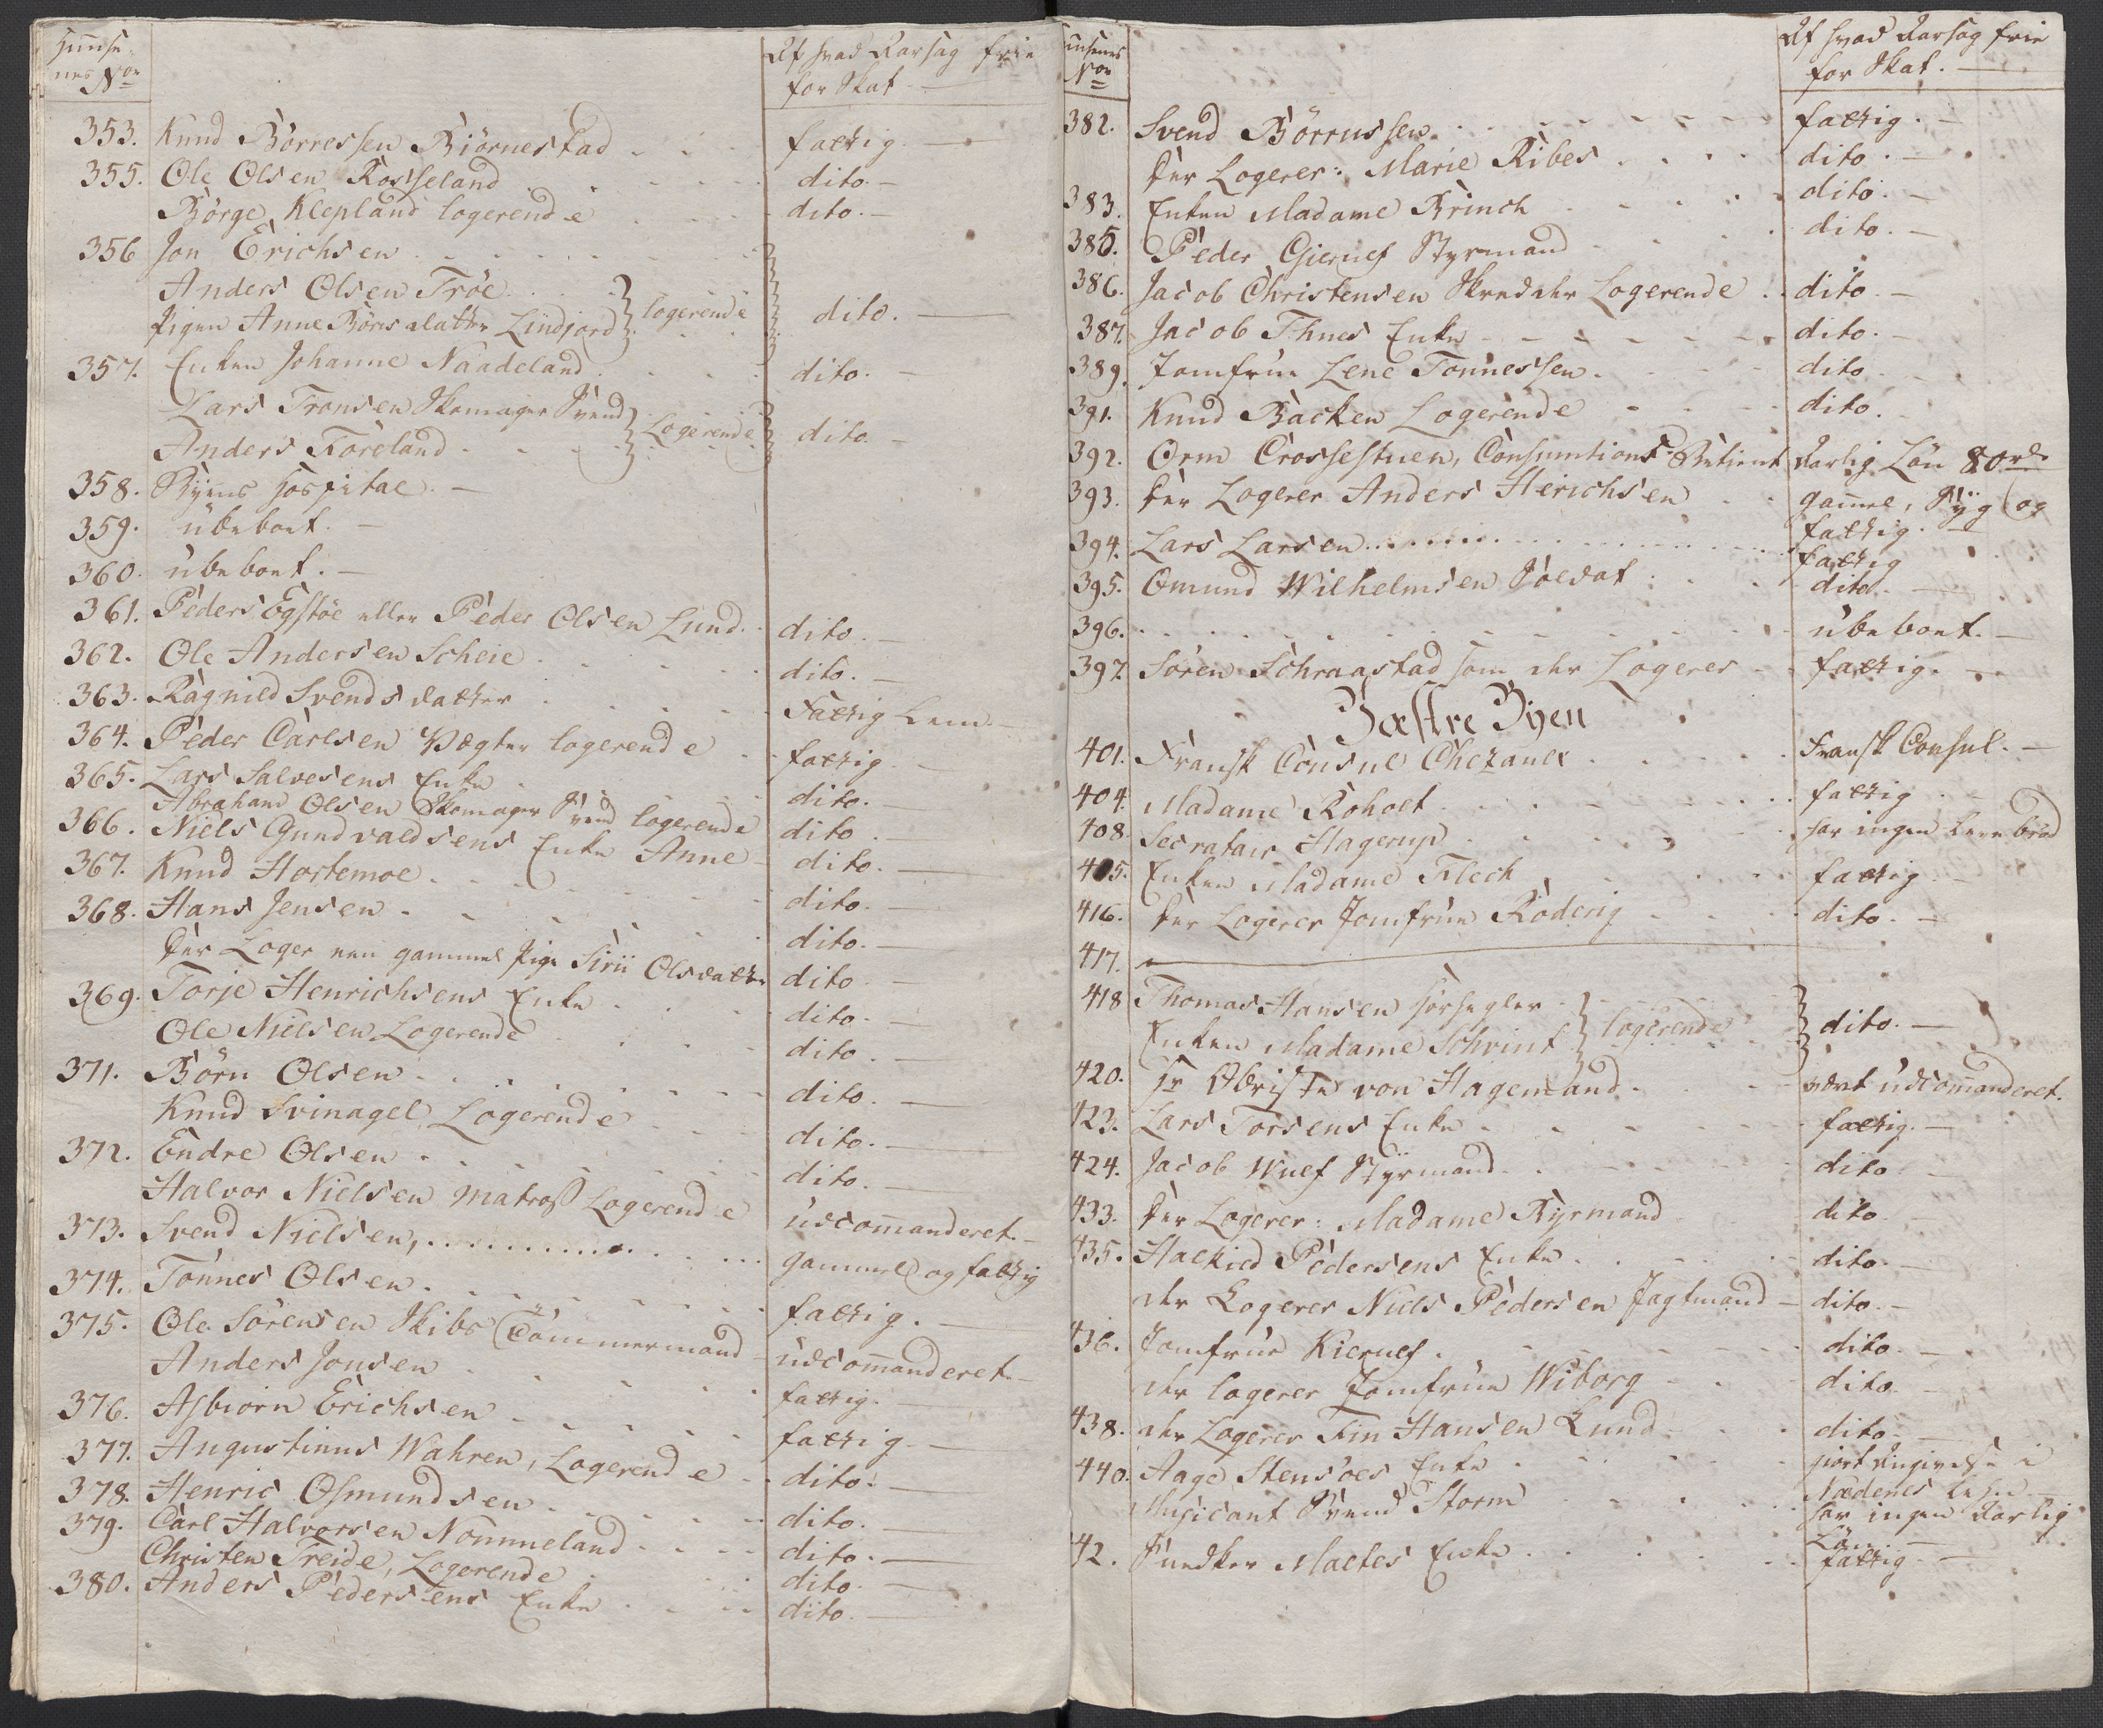 Huuse-
nes Nor
Af hvad Aarsag frie
for Skat.
353. Knud Börressen Biörnestad fattig.
355. Ole Olsen Rosseland dito.
Börge Klepland logerende dito.
356 Jon Erichsen
Anders Olsen Tröe
Pigen Anne Börisdatter Lindjord logerende dito.
357. Enken Johanne Naadeland dito.
Lars Tronsen Skomager Svend
Anders Föreland Logerende dito.
358. Byens Hospital.
359. übeboet.
360. übeboet.
361. Peders Egstöe eller Peder Olsen Lund dito.
362. Ole Andersen Scheie dito.
363. Ragnild Svendsdatter Fattig Lem
364. Peder Carlsen Vægter logerende fattig
365. Lars Salvesens Enke dito.
Abraham Olsen Skomager Svend logerende dito.
366. Niels Gundvaldsens Enke Anne dito.
367. Knud Hortemoe dito.
368. Hans Jensen dito.
Der Loger een gammel Pige Sirii Olsdatter dito
369. Torje Henrichsens Enke dito.
Ole Nielsen Logerende dito.
371. Börn Olsen dito.
Knud Svinagel Logerende dito.
372. Endre Olsen dito.
Halvor Nielsen Matros Logerende udcommanderet.
373. Svend Nielsen, gammel og fattig
374. Tönnes Olsen fattig.
375. Ole Sörensen Skibs Tömmermand udcommanderet.
Anders Jonsen fattig.
376. Asbiörn Erichsen fattig.
377. Augustinus Wahren, Logerende dito.
378. Henric Osmundsen dito.
379. Carl Halvorsen Nommeland dito.
Christen Treide, Logerende dito.
380. Anders Pedersens Enke dito.
Huusenes
Nor
Af hvad Aarsag frie
for Skat.
382. Svend Börrussen fattig.
Der Logerer: Marie Ribes dito.
383. Enken Madame Brinch dito.
385. Peder Gierulf Styrmand dito.
386. Jacob Christensen Skredder Logerende dito.
387. Jacob Thues Enke dito.
389. Jomfrue Lene Tönnessen dito
391. Knud Backen Logerende dito.
392. Orm Crossestuen, Consumtions Betient Aarlig Lön 80 rd.
393. Der Logerer Anders Herichsen gammel, Syg og
fattig.
394. Lars Larsen fattig
395. Omund Wilhelmsen Soldat dito.
396. übeboet.
397. Sören Schraastad som der Logerer fattig.
Væstre Byen
401. Fransk Consul Chezaulx Fransk Consul.
404. Madame Roholt fattig
408. Secretair Hagerup har ingen Levebröd
405. Enken Madame Flech fattig
416. Der Logerer Jomfrue Röderig dito.
417.
418 Thomas Hansen Forsegler
Enken Madame Schvint logerende dito.
420. Hr Obriste von Hagemand været udcomanderet.
423. Lars Torsens Enke fattig.
424. Jacob Wulf Styrmand dito
433. Der Logerer: Madame Byrmand dito
435. Halkied Pedersens Enke dito.
der Logerer Niels Pedersen Jagtmand dito.
436. Jomfrue Kierulf dito.
der logerer Jomfrue Wiborg dito.
438. der Logerer Fin Hansen Lund dito.
440. Aage Stensöes Enke giort Angivelse i
Nædenes Lehn
Musicant Svend Storm har ingen Aarlig
Lön
42. Snedker Maltes Enke fattig